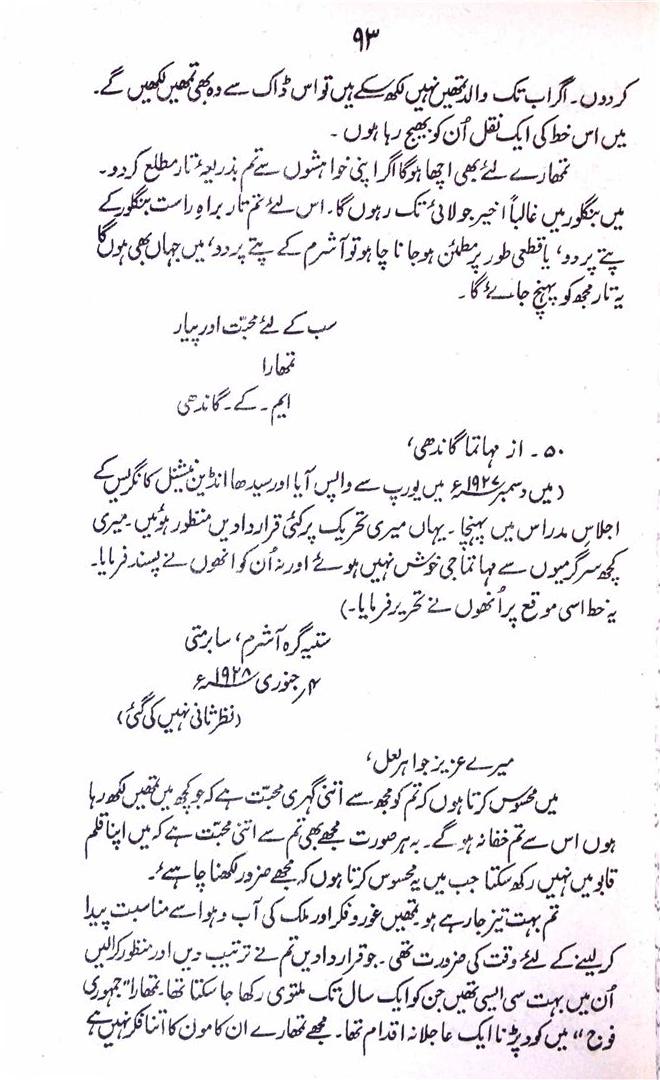 ۹۳
کر دوں۔ اگر اب تک والد تمھیں نہیں لکھ سکے ہیں تو اس ڈاک سے وہ بھی تمھیں لکھیں گے۔
میں اس خط کی ایک نقل اُن کو بھیج رہا ہوں۔
تمھارے لئے بھی اچھا ہوگا اگر اپنی خواہشوں سے تم بذریعۂ تار مطلع کر دو۔
میں بنگلور میں غالباً اخیر جولائی تک رہوں گا۔ اس لئے تم تار براہِ راست بنگلور کے
پتے پر دو، یا قطعی طور پر مطمئن ہو جانا چاہو تو آشرم کے پتے پر دو، میں جہاں بھی ہوں گا
یہ تار مجھ کو پہنچ جائے گا۔
سب کے لئے محبّت اور پیار
تمھارا
ایم۔ کے۔ گاندھی
۵۰۔ از مہاتما گاندھی،
(میں دسمبر ۱۹۲۷ء میں یورپ سے واپس آیا اور سیدھا انڈین نیشنل کانگریس کے
اجلاس مدراس میں پہنچا۔ یہاں میری تحریک پر کئی قراردادیں منظور ہوئیں۔ میری
کچھ سرگرمیوں سے مہاتما جی خوش نہیں ہوئے اور نہ اُن کو انھوں نے پسند فرمایا۔
یہ خط اسی موقع پر اُنھوں نے تحریر فرمایا۔)
ستیہ گرہ آشرم، سابرمتی
۴؍ جنوری ۱۹۲۸ء
(نظرثانی نہیں کی گئی)
میرے عزیز جواہر لعل،
میں محسوس کرتا ہوں کہ تم کو مجھ سے اتنی گہری محبّت ہے کہ جو کچھ میں تمھیں لکھ رہا
ہوں اس سے تم خفا نہ ہو گے۔ بہ ہر صورت مجھے بھی تم سے اتنی محبّت ہے کہ میں اپنا قلم
قابو میں نہیں رکھ سکتا جب میں یہ محسوس کرتا ہوں کہ مجھے ضرور لکھنا چاہئے۔
تم بہت تیز جا رہے ہو تمھیں غور و فکر اور ملک کی آب و ہوا سے مناسبت پیدا
کر لینے کے لئے وقت کی ضرورت تھی۔ جو قراردادیں تم نے ترتیب دیں اور منظور کرالیں
اُن میں بہت سی ایسی تھیں جن کو ایک سال تک ملتوی رکھا جا سکتا تھا۔ تمھارا "جمہوری
فوج" میں کود پڑنا ایک عاجلانہ اقدام تھا۔ مجھے تمھارے ان کاموں کا اتنا فکر نہیں ہے